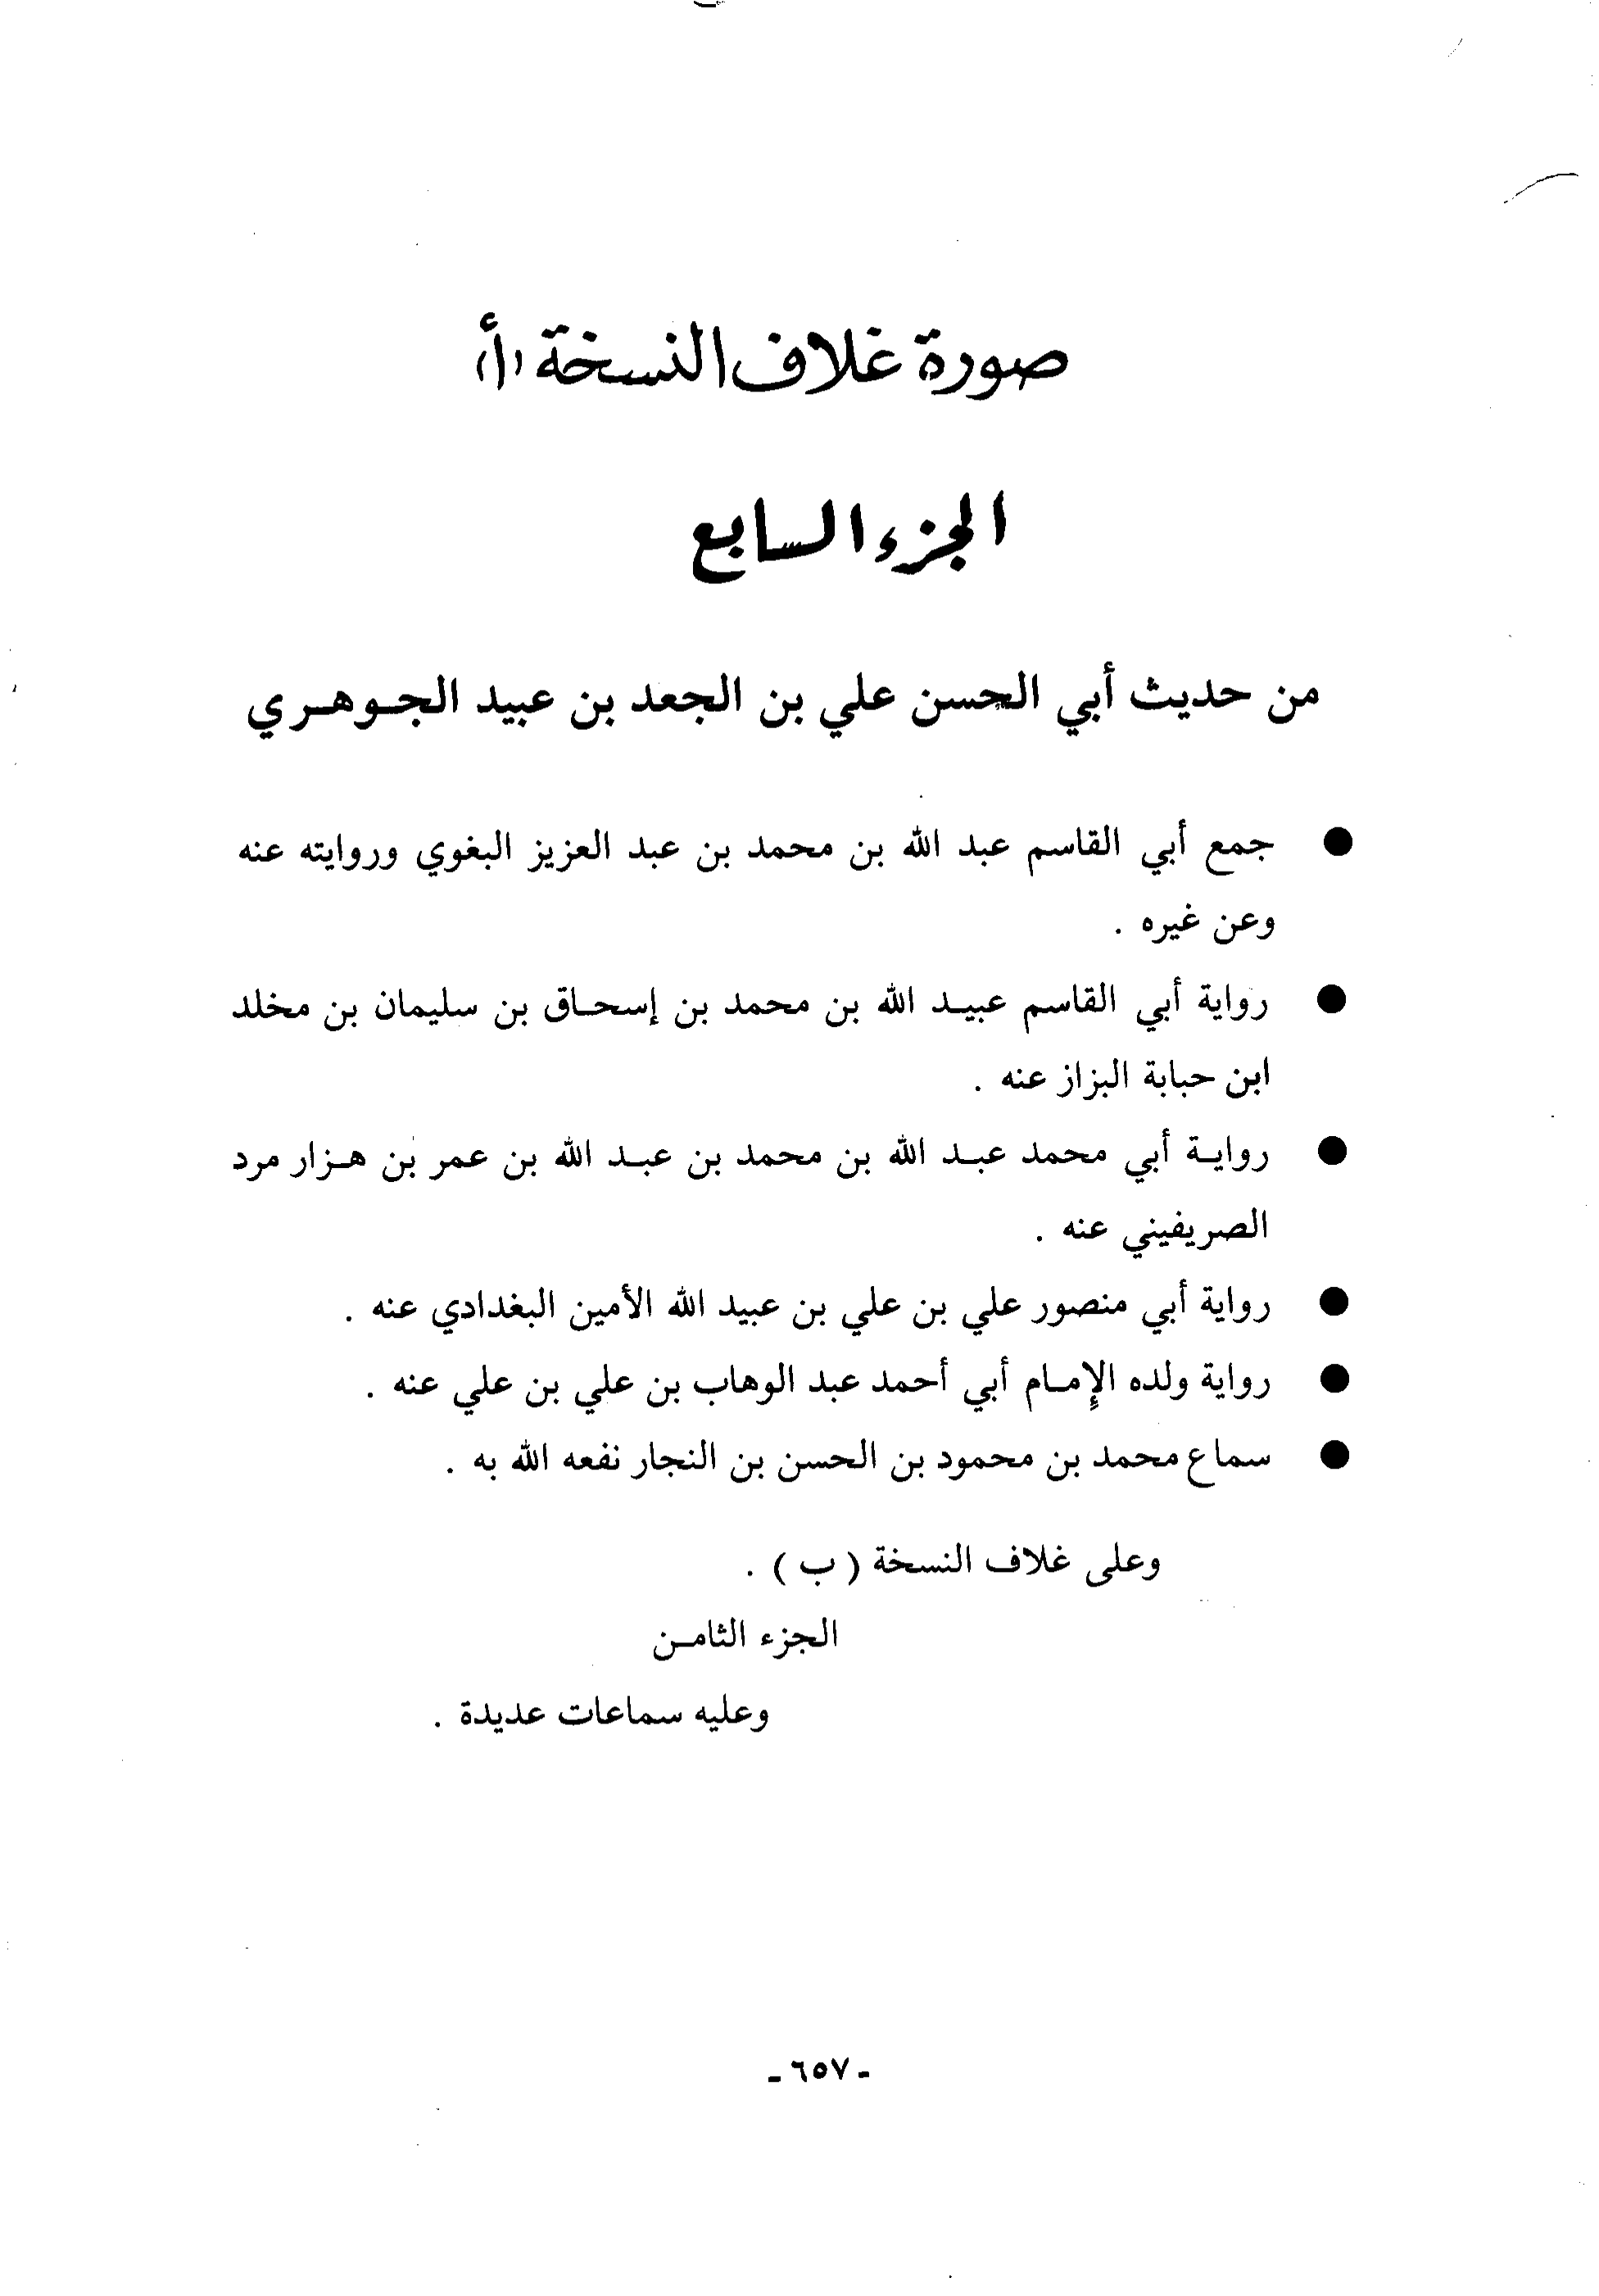 صورة غلاف النسخة (أ)
الجزء السابع
من حديث أبي الحسن علي بن الجعد بن عبيد الجوهري
● جمع أبي القاسم عبد الله بن محمد بن عبد العزيز البغوي وروايته عنه
وعن غيره .
● رواية أبي القاسم عبيد الله بن محمد بن إسحاق بن سليمان بن مخلد
ابن حبابة البزاز عنه .
● رواية أبي محمد عبد الله بن محمد بن عبد الله بن عمر بن هزار مرد
الصريفيني عنه .
● رواية أبي منصور علي بن علي بن عبيد الله الأمين البغدادي عنه .
● رواية ولده الإمام أبي أحمد عبد الوهاب بن علي بن علي عنه .
● سماع محمد بن محمود بن الحسن بن النجار نفعه الله به .
وعلى غلاف النسخة ( ب ) .
الجزء الثامن
وعليه سماعات عديدة .
- ٦٥٧ -